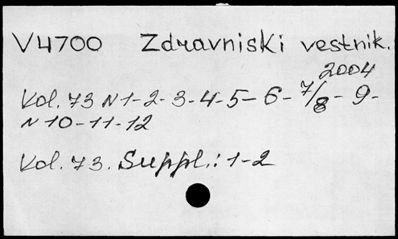 V4700 Zdravniski vestnik.
2004
Vol. 73 N1-2-3-4-5-6-7/8-9-
N10-11-12
Vol. 73. Suppl.: 1-2